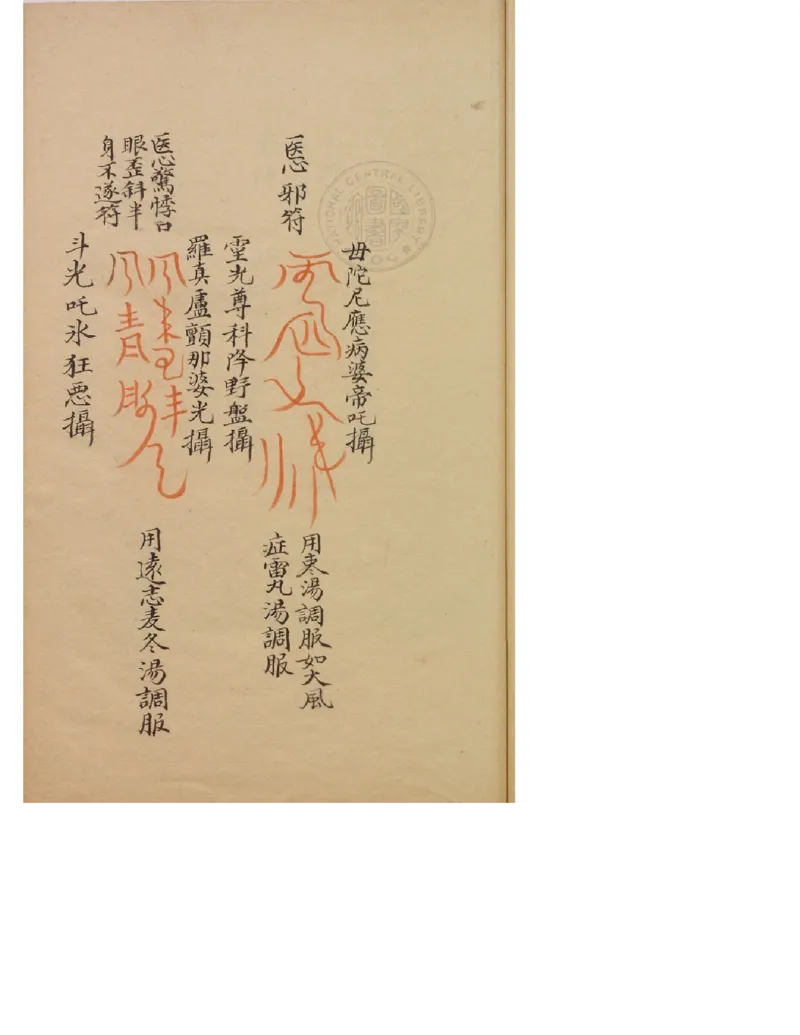 医心邪符
毋陀尼應病婆帝吒攝
靈光尊科降野盤攝
用棗湯調服如大風
症雷丸湯調服
医心驚悸口
眼歪斜半
身不遂符
羅真盧顫那婆光攝
斗光吒氷狂悪攝
用遠志麦冬湯調服
NATIONAL CENTRAL LIBRARY